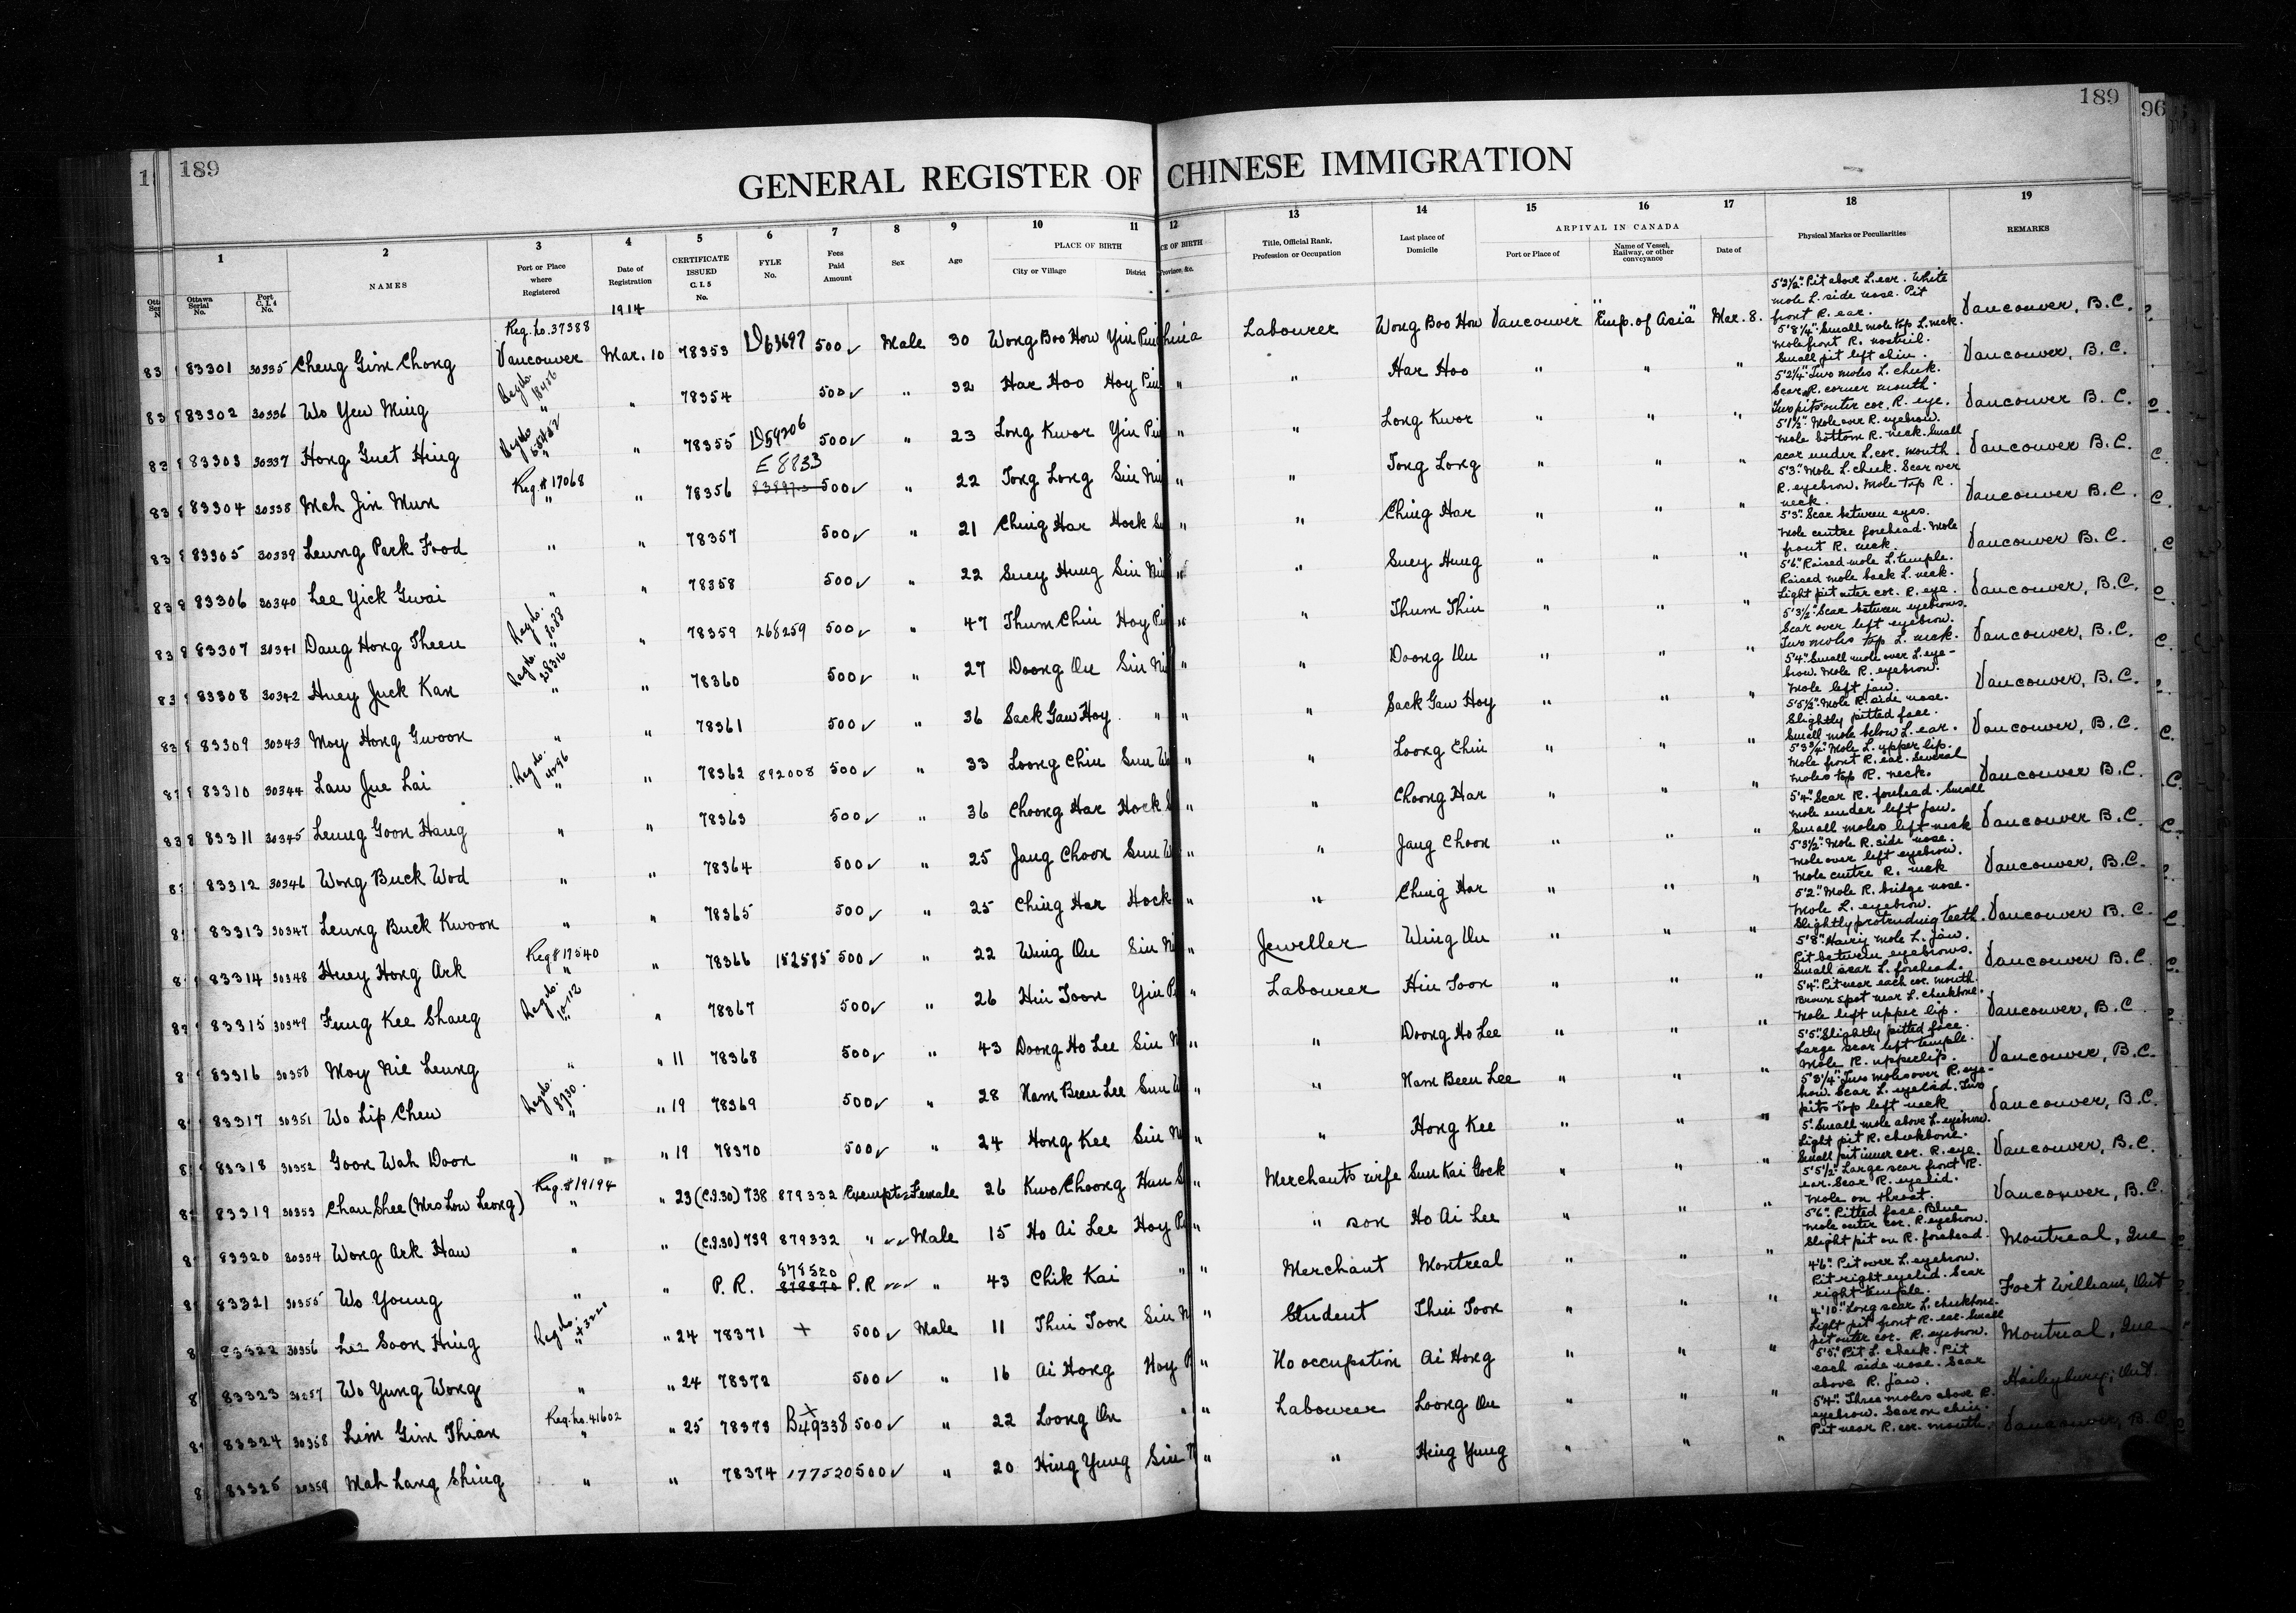 189
189
96
GENERAL REGISTER OF CHINESE IMMIGRATION
1 2 3 4 5 6 7 8 9 10 11 12 13 14 15 16 17 18 19
PLACE OF BIRTH
ARRIVAL IN CANADA
Ottawa Serial No. Port C.I.4 No. NAMES Port or Place where Registered Date of Registration CERTIFICATE ISSUED C.I.5 No. FYLE No. Fees Paid Amount Sex Age City or Village District Province, &c. Title, Official Rank, Profession or Occupation Last place of Domicile Port or Place of Name of Vessel, Railway, or other conveyance Date of Physical Marks or Peculiarities REMARKS
1914
83301 30335 Cheng Gim Chong Reg. No. 37388 Vancouver Mar. 10 78353 D63697 500 ✓ Male 30 Wong Boo How Yin Pin China Labourer Wong Boo How Vancouver "Emp. of Asia" Mar. 8. 5'3½". Pit above L. ear. White mole L. side nose. Pit front R. ear. Vancouver, B.C.
83302 30336 Wo Yew Ming Reg No. 18486 " " 78354 500 ✓ " 32 Har Hoo Hoy Pin " " Har Hoo " " " 5'8¼". Small mole top L. neck. Mole front R. nostril. Small pit left chin. Vancouver, B.C.
83303 30337 Hong Guet Hing Reg No. " " 78355 D59206 500 ✓ " 23 Long Kwor Yin Pin " " Long Kwor " " " 5'2¼". Two moles L. cheek. Scar R. corner mouth. Two pits outer cor. R. eye. Vancouver B.C.
83304 30338 Mah Jin Mun Reg. # 17068 " " 78356 E8833 500 ✓ " 22 Tong Long Sin Ni " " Tong Long " " " 5'1½". Mole over R. eyebrow. Mole bottom R. neck. Small scar under L. cor. mouth. Vancouver B.C.
83305 30339 Leung Perk Food " " 78357 500 ✓ " 21 Ching Har Hock S " " Ching Har " " " 5'3". Mole L. cheek. Scar over R. eyebrow. Mole top R. neck. Vancouver B.C.
83306 30340 Lee Yick Gwai " " 78358 500 ✓ " 22 Suey Hung Sin Ni " " Suey Hung " " " 5'3". Scar between eyes. Mole centre forehead. Mole front R. neck. Vancouver B.C.
83307 30341 Dang Hong Theen Reg No. 2088 " " 78359 268259 500 ✓ " 47 Thum Chin Hoy Pi " " Thum Thin " " " 5'6". Raised mole L. temple. Raised mole back L. neck. Light pit outer cor. R. eye. Vancouver, B.C.
83308 30342 Huey Juck Kan Reg No. 28316 " " 78360 500 ✓ " 27 Doong On Sin Ni " " Doong On " " " 5'3½". Scar between eyebrows. Scar over left eyebrow. Two moles top L. neck. Vancouver, B.C.
83309 30343 Moy Hong Gwoon " " 78361 500 ✓ " 36 Sack Gaw Hoy " " " Sack Gaw Hoy " " " 5'4". Small mole over L. eyebrow. Mole R. eyebrow. Mole left jaw. Vancouver, B.C.
83310 30344 Lau Jue Lai Reg No. 4296 " " 78362 892008 500 ✓ " 33 Loong Chin Sun W " " Loong Chin " " " 5'5½". Mole R. side nose. Slightly pitted face. Small mole below L. ear. Vancouver, B.C.
83311 30345 Leung Goon Hang " " 78363 500 ✓ " 36 Choong Har Hock S " " Choong Har " " " 5'3¾". Mole L. upper lip. Mole front R. ear. Several moles top R. neck. Vancouver B.C.
83312 30346 Wong Buck Wod " " 78364 500 ✓ " 25 Jang Choon Sun W " " Jang Choon " " " 5'4". Scar R. forehead. Small mole under left jaw. Small moles left neck Vancouver B.C.
83313 30347 Leung Buck Kwoon " " 78365 500 ✓ " 25 Ching Har Hock " " Ching Har " " " 5'3½". Mole R. side nose. Mole over left eyebrow. Mole centre R. neck Vancouver, B.C.
83314 30348 Huey Hong Ark Reg # 17540 " " 78366 152585 500 ✓ " 22 Wing On Sin Ni " Jeweller Wing On " " " 5'2". Mole R. bridge nose. Mole L. eyebrow. Slightly protruding teeth. Vancouver B.C.
83315 30349 Fung Kee Shang Reg No. " " 78367 500 ✓ " 26 Hin Toon Yin P " Labourer Hin Toon " " " 5'8". Hairy mole L. jaw. Pit between eyebrows. Small scar L. forehead. Vancouver B.C.
83316 30350 Moy Nie Leung " " 11 78368 500 ✓ " 43 Doong Ho Lee Sin N " " Doong Ho Lee " " " 5'4". Pit near each cor. mouth. Brown spot near L. cheekbone. Mole left upper lip. Vancouver, B.C.
83317 30351 Wo Lip Chew Reg No. 8730. " " 19 78369 500 ✓ " 28 Nam Been Lee Sun W " " Nam Been Lee " " " 5'5". Slightly pitted face. Large scar left temple. Mole R. upper lip. Vancouver, B.C.
83318 30352 Goon Wah Doon " " 19 78370 500 ✓ " 24 Hong Kee Sin N " " Hong Kee " " " 5'3¼". Two moles over R. eyebrow. Scar L. eyelid. Two pits top left neck Vancouver, B.C.
83319 30353 Chan Shee (Mrs Low Leong) Reg. # 19194 " " 23 (C.I.30) 738 879332 Exempt Female 26 Kwo Choong Hun S " Merchant's wife Sun Kai Gock " " " 5'. Small mole above L. eyebrow. Light pit R. cheekbone. Small pit inner cor. R. eye. Vancouver, B.C.
83320 30354 Wong Ark Haw " " (C.I.30) 739 879332 " Male 15 Ho Ai Lee Hoy P " " son Ho Ai Lee " " " 5'5½". Large scar front R. ear. Scar R. eyelid. Mole on throat. Vancouver, B.C.
83321 30355 Wo Young " " P.R. 878520 878870 P.R " 43 Chik Kai " " Merchant Montreal " " " 5'6". Pitted face. Blue mole outer cor. R. eyebrow. Slight pit on R. forehead. Montreal, Que
83322 30356 Lee Soon Hing Reg No. " " 24 78371 + 500 ✓ Male 11 Thui Toon Sin N " Student Thui Toon " " " 4'6". Pit over L. eyebrow. Pit right eyelid. Scar right temple. Fort William, Ont
83323 30357 Wo Yung Wong " " 24 78372 500 ✓ " 16 Ai Hong Hoy P " No occupation Ai Hong " " " 4'10". Long scar L. cheekbone. Light pit front R. ear. Small pit outer cor. R. eyebrow. Montreal, Que
83324 30358 Lim Gim Thian Reg. No. 41602 " " 25 78373 B49338 500 ✓ " 22 Loong On " " Labourer Loong On " " " 5'5". Pit L. cheek. Pit each side nose. Scar above R. jaw. Haileybury, Ont.
83325 30359 Mah Lang Shing " " 78374 177520 500 ✓ " 20 Hing Yung Sin N " " Hing Yung " " " 5'4". Three moles above R. eyebrow. Scar on chin. Pit near R. cor. mouth. Vancouver, B.C.